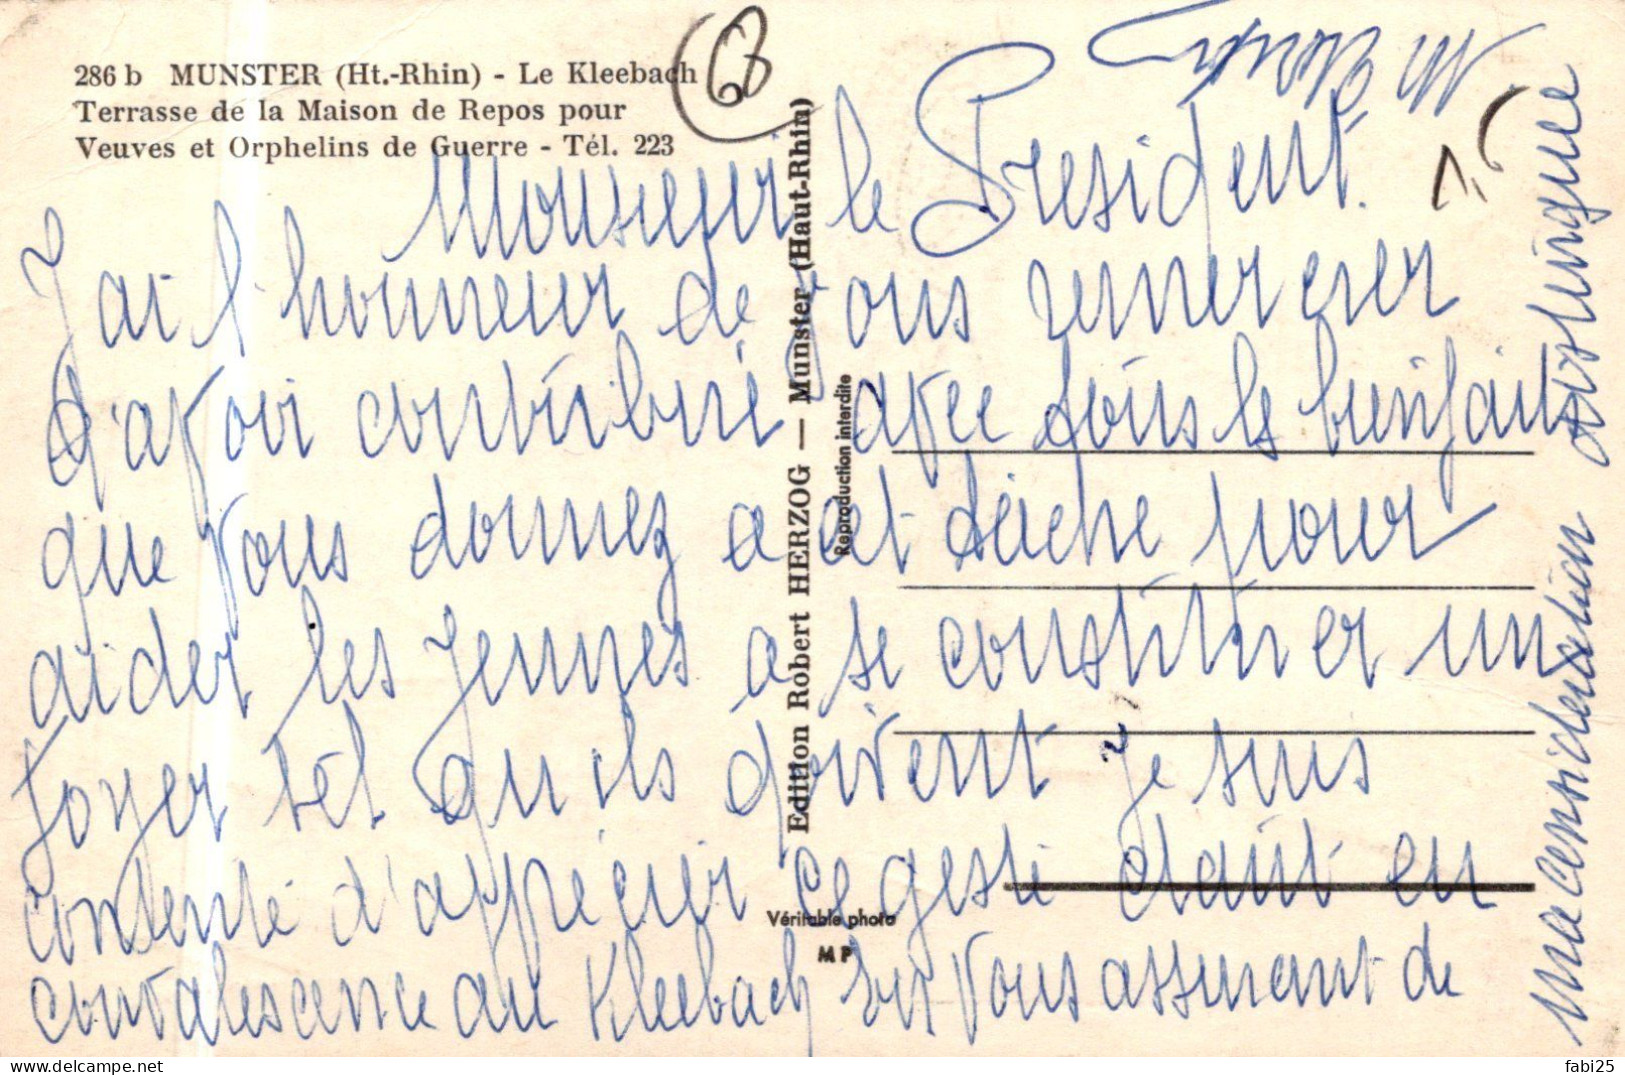 286 b MUNSTER (Ht.-Rhin) - Le Kleebach
Terrasse de la Maison de Repos pour
Veuves et Orphelins de Guerre - Tél. 223
68
Monsieur le President.
J'ai l'honneur de vous remercier
d'avoir contribué avec tous les bienfaits
que vous donnez a cet tâche pour
aider les jeunes a se constituer un
foyer tel qu'ils doivent je suis
contente d'apprécier ce geste étant en
convalescence au Kleebach en vous assurant de
ma consideration distinguee
M
Edition Robert HERZOG — Munster (Haut-Rhin)
Reproduction interdite
Véritable photo
M P
fabi25